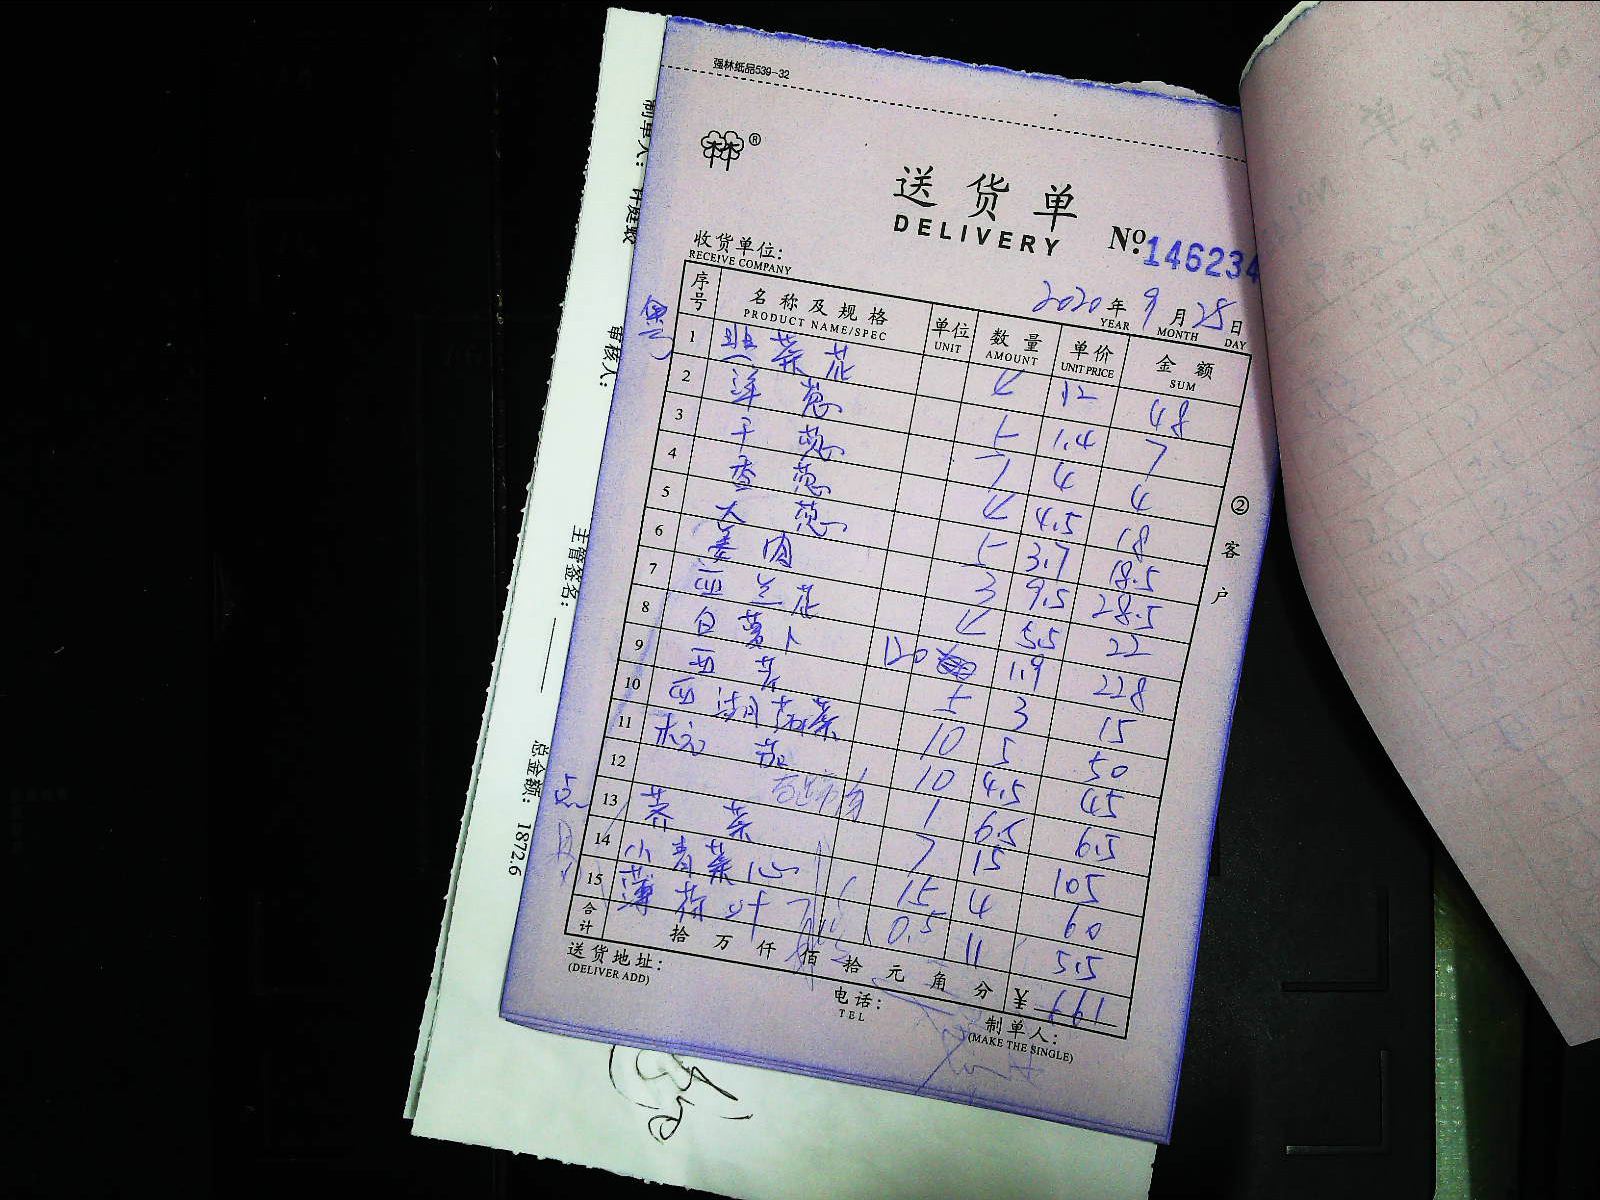 强林纸品539-32
®
送货单
DELIVERY
No. 146234
收货单位:
RECEIVE COMPANY
2020年9月25日
YEAR MONTH DAY
序号 名称及规格 单位 数量 单价 金额
PRODUCT NAME/SPEC UNIT AMOUNT UNIT PRICE SUM
1 韭菜花 4 12 48
2 洋葱 5 1.4 7
3 干葱 1 4 4
4 香葱 4 4.5 18
5 大葱 5 3.7 18.5
6 姜肉 3 9.5 28.5
7 西兰花 4 5.5 22
8 白萝卜 120 1.9 228
9 西芹 5 3 15
10 西湖芹菜 10 5 50
11 10 4.5 45
12 1 6.5 6.5
13 荠菜 7 15 105
14 小青菜心 15 4 60
15 薄荷叶 0.5 11 5.5
合计 拾 万 仟 佰 拾 元 角 分 ¥ 661
送货地址:
(DELIVER ADD)
电话:
TEL
制单人:
(MAKE THE SINGLE)
②客户
制单人:
审核人:
主管签名:
总金额: 1872.6